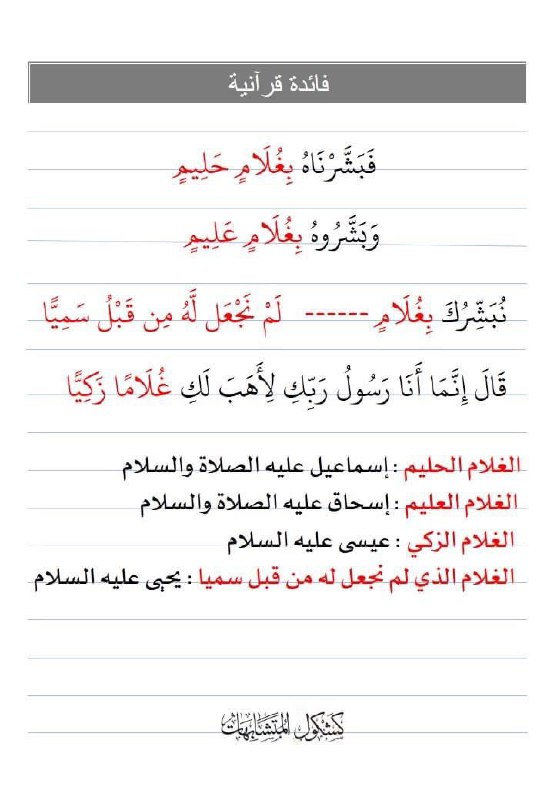 فائدة قرآنية
فَبَشَّرْنَاهُ بِغُلَامٍ حَلِيمٍ
وَبَشَّرُوهُ بِغُلَامٍ عَلِيمٍ
نُبَشِّرُكَ بِغُلَامٍ ------ لَمْ نَجْعَل لَّهُ مِن قَبْلُ سَمِيًّا
قَالَ إِنَّمَا أَنَا رَسُولُ رَبِّكِ لِأَهَبَ لَكِ غُلَامًا زَكِيًّا
الغلام الحليم : إسماعيل عليه الصلاة والسلام
الغلام العليم : إسحاق عليه الصلاة والسلام
الغلام الزكي : عيسى عليه السلام
الغلام الذي لم نجعل له من قبل سميا : يحيى عليه السلام
كشكول المتشابهات